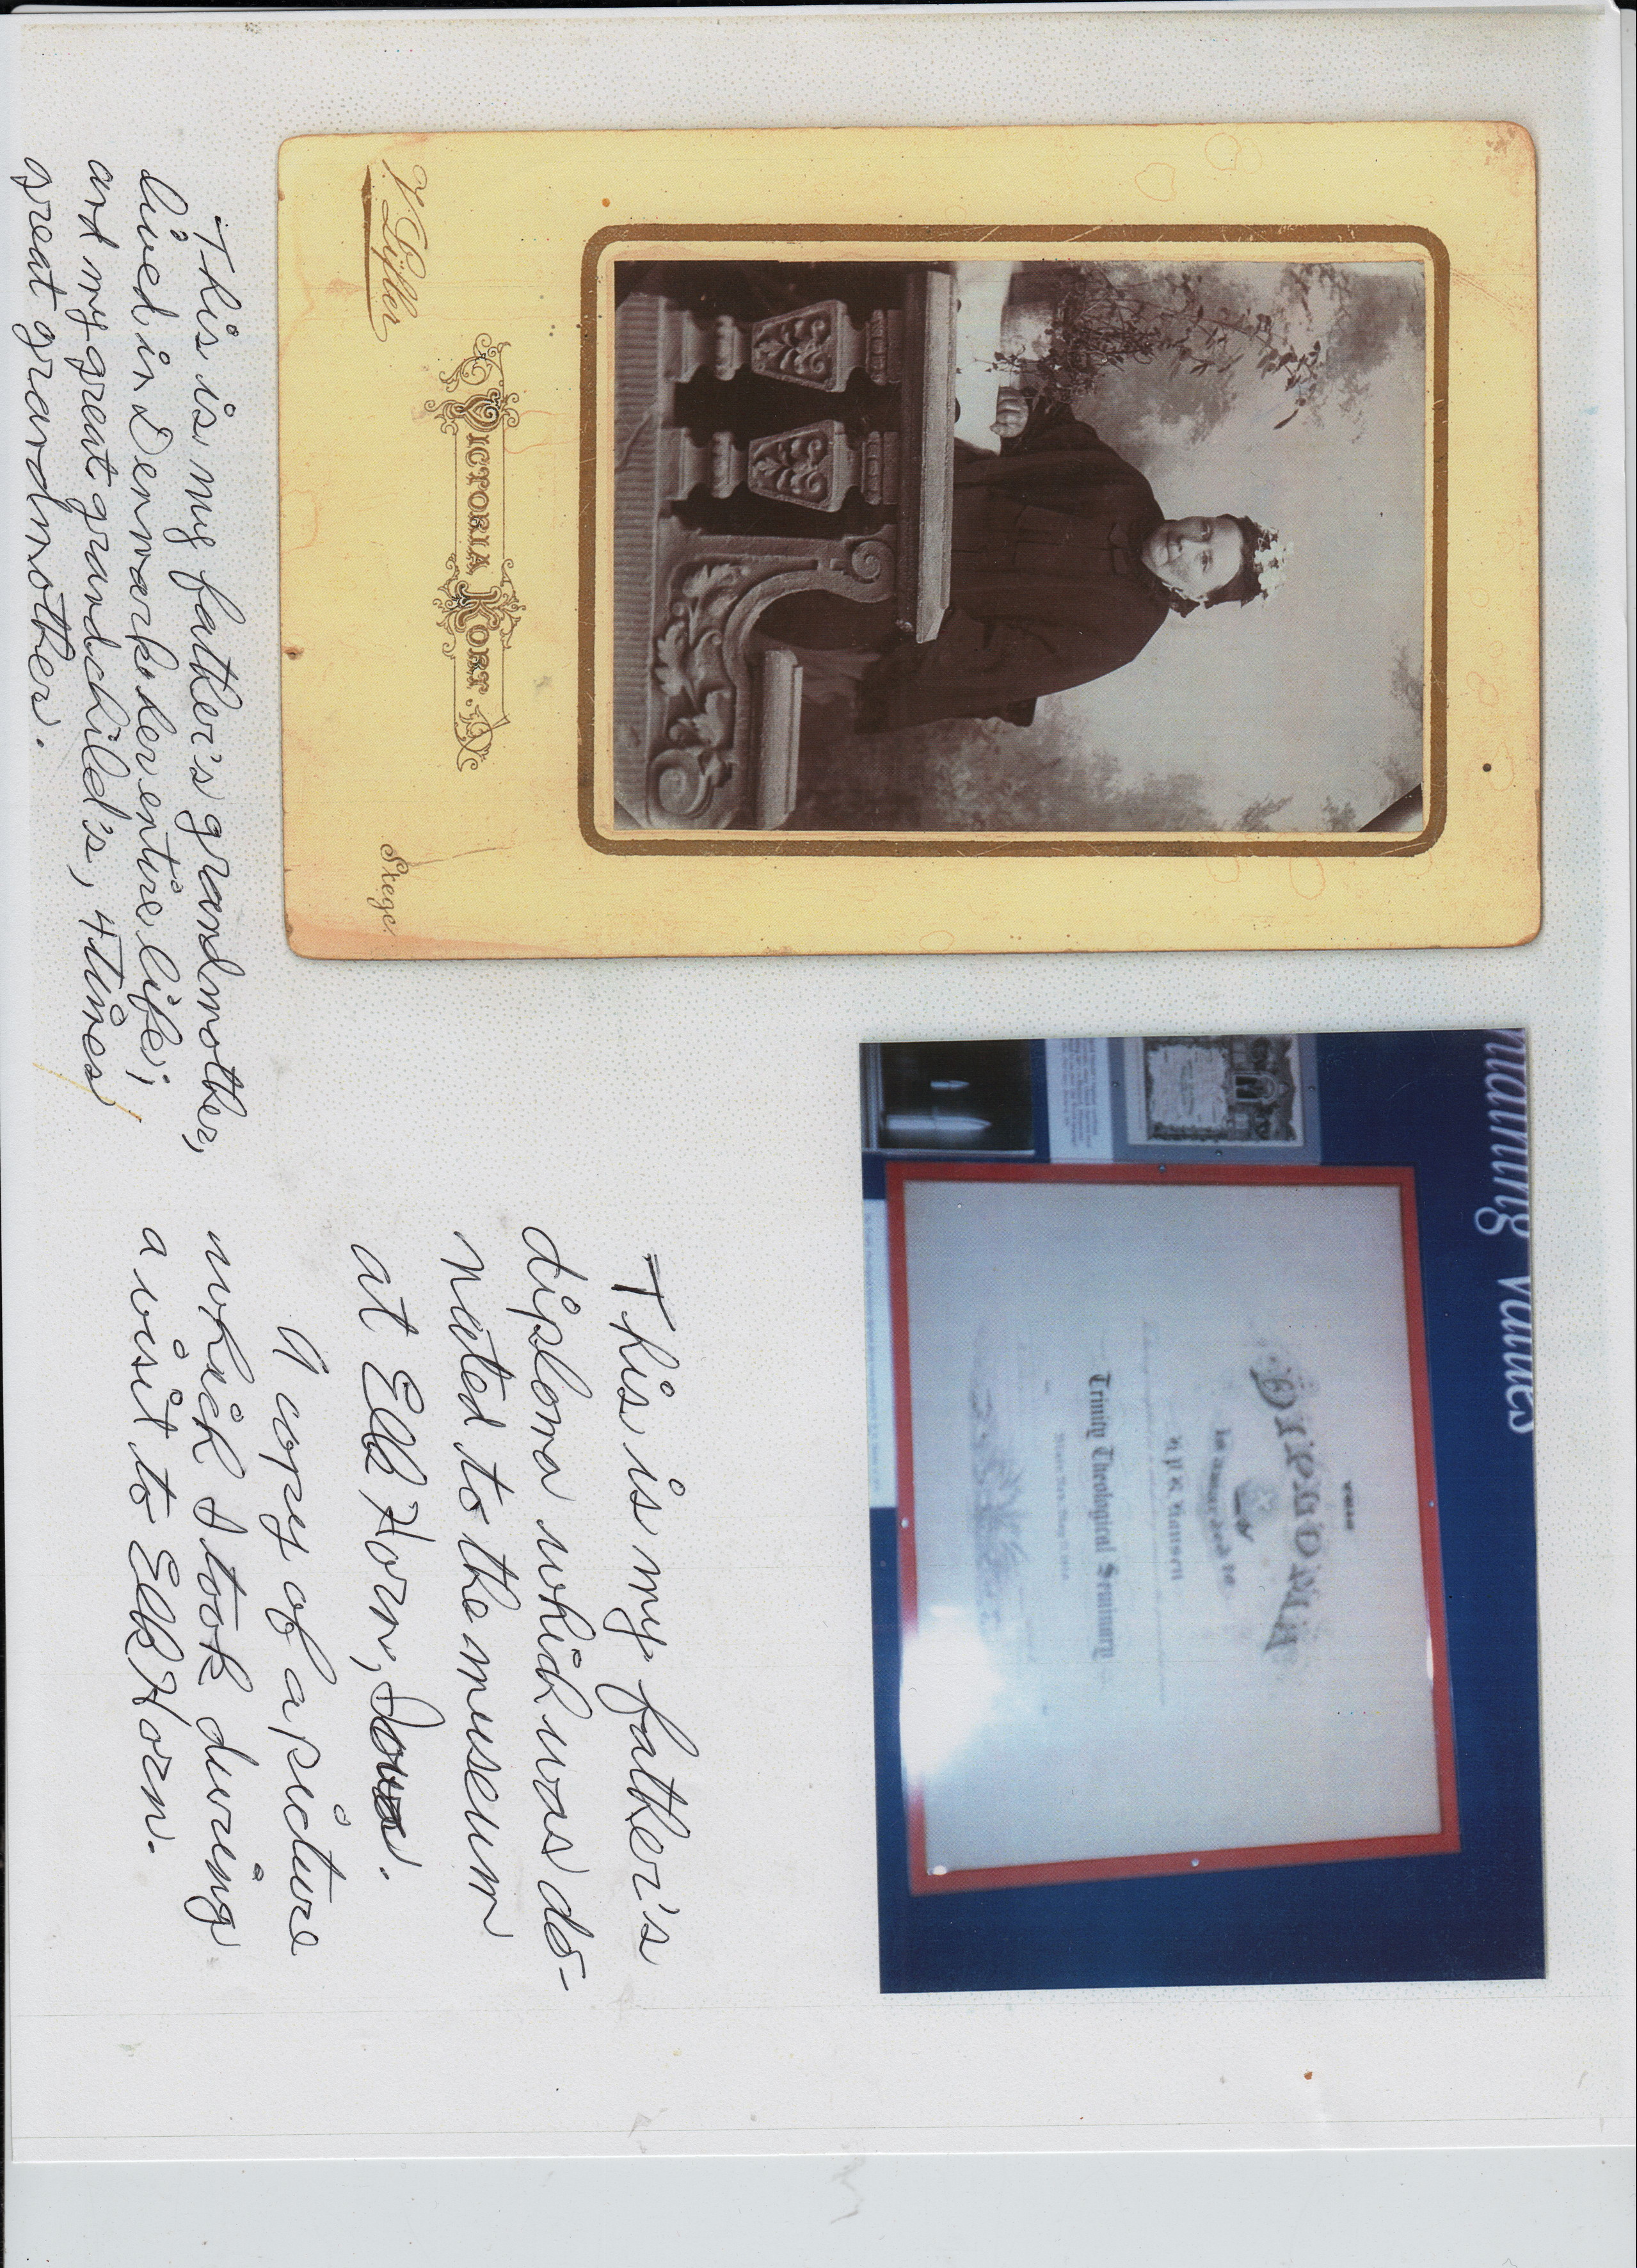 Victoria Kort.
Skege.
This is my father's grandmother,
lived in Denmark her entire life;
and my great grandchild's, 4 times
great grandmother.
Diploma
Trinity Theological Seminary
This is my father's
diploma which was do-
nated to the museum
at Elk Horn, Iowa.
A copy of a picture
which I took during
a visit to Elk Horn.